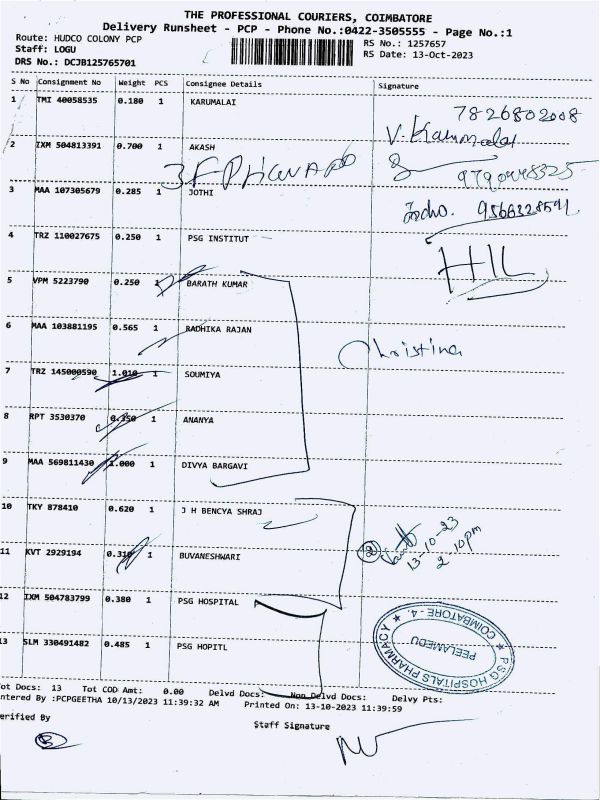 THE PROFESSIONAL COURIERS, COIMBATORE
Delivery Runsheet - PCP - Phone No.:0422-3505555 - Page No.:1
Route: HUDCO COLONY PCP
RS No.: 1257657
Staff: LOGU
RS Date: 13-Oct-2023
DRS No.: DCJB125765701
S No Consignment No Weight PCS Consignee Details Signature
1 TMI 40058535 0.180 1 KARUMALAI 7826802008
2 IXM 504813391 0.700 1 AKASH
3 MAA 107305679 0.285 1 JOTHI
4 TRZ 110027675 0.250 1 PSG INSTITUT HIL
5 VPM 5223790 0.250 1 BARATH KUMAR
6 MAA 103881195 0.565 1 RADHIKA RAJAN Christina
7 TRZ 145000590 1.010 1 SOUMIYA
8 RPT 3530370 0.350 1 ANANYA
9 MAA 569811430 1.000 1 DIVYA BARGAVI
10 TKY 878410 0.620 1 J H BENCYA SHRAJ
11 KVT 2929194 0.310 1 BUVANESHWARI 2 13-10-23 2.10pm
12 IXM 504783799 0.380 1 PSG HOSPITAL
13 SLM 330491482 0.485 1 PSG HOPITL
PSG HOSPITALS PHARMACY ★ COIMBATORE - 4. ★
PEELAMEDU
ot Docs: 13 Tot COD Amt: 0.00 Delvd Docs: Non Delvd Docs: Delvy Pts:
ntered By :PCPGEETHA 10/13/2023 11:39:32 AM Printed On: 13-10-2023 11:39:59
erified By Staff Signature